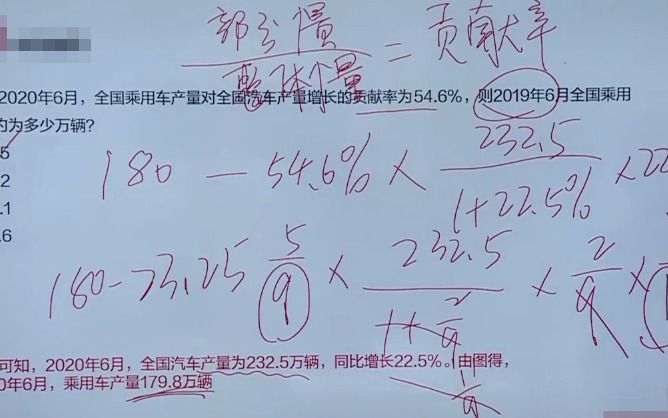 部分增量
整体增量 = 贡献率
2020年6月，全国乘用车产量对全国汽车产量增长的贡献率为54.6%，则2019年6月全国乘用
为多少万辆？
5
2
.1
.6
180 - 54.6% × 232.5 / 1+22.5% × 22
180-23.25 5/9 × 232.5 / 1+2/9 × 2/9 ×
11/9
可知，2020年6月，全国汽车产量为232.5万辆，同比增长22.5%。由图得，
0年6月，乘用车产量179.8万辆